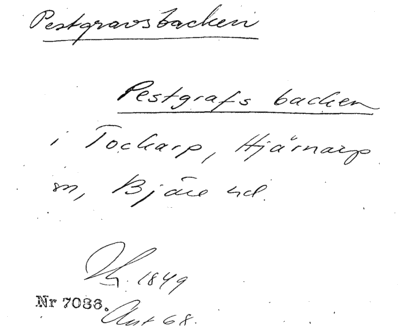 Pestgravsbacken
Pestgrafs backen
i Tockarp, Hjärnarp
sn, Bjäre hd.
1849
Nr 7086.
Ant 68.